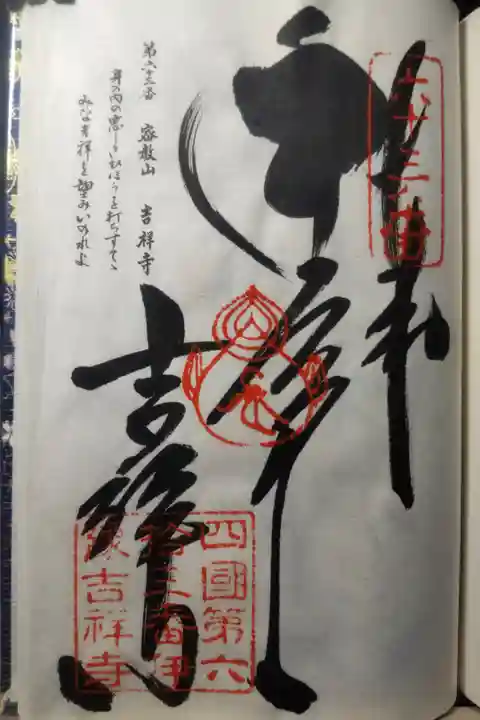 奉
六十三番
吉祥寺
四國第六
拾三番伊
豫吉祥寺
第六十三番 密教山 吉祥寺
身の内の悪しきひほうを打ちすてゝ
みな吉祥を望みいのれよ